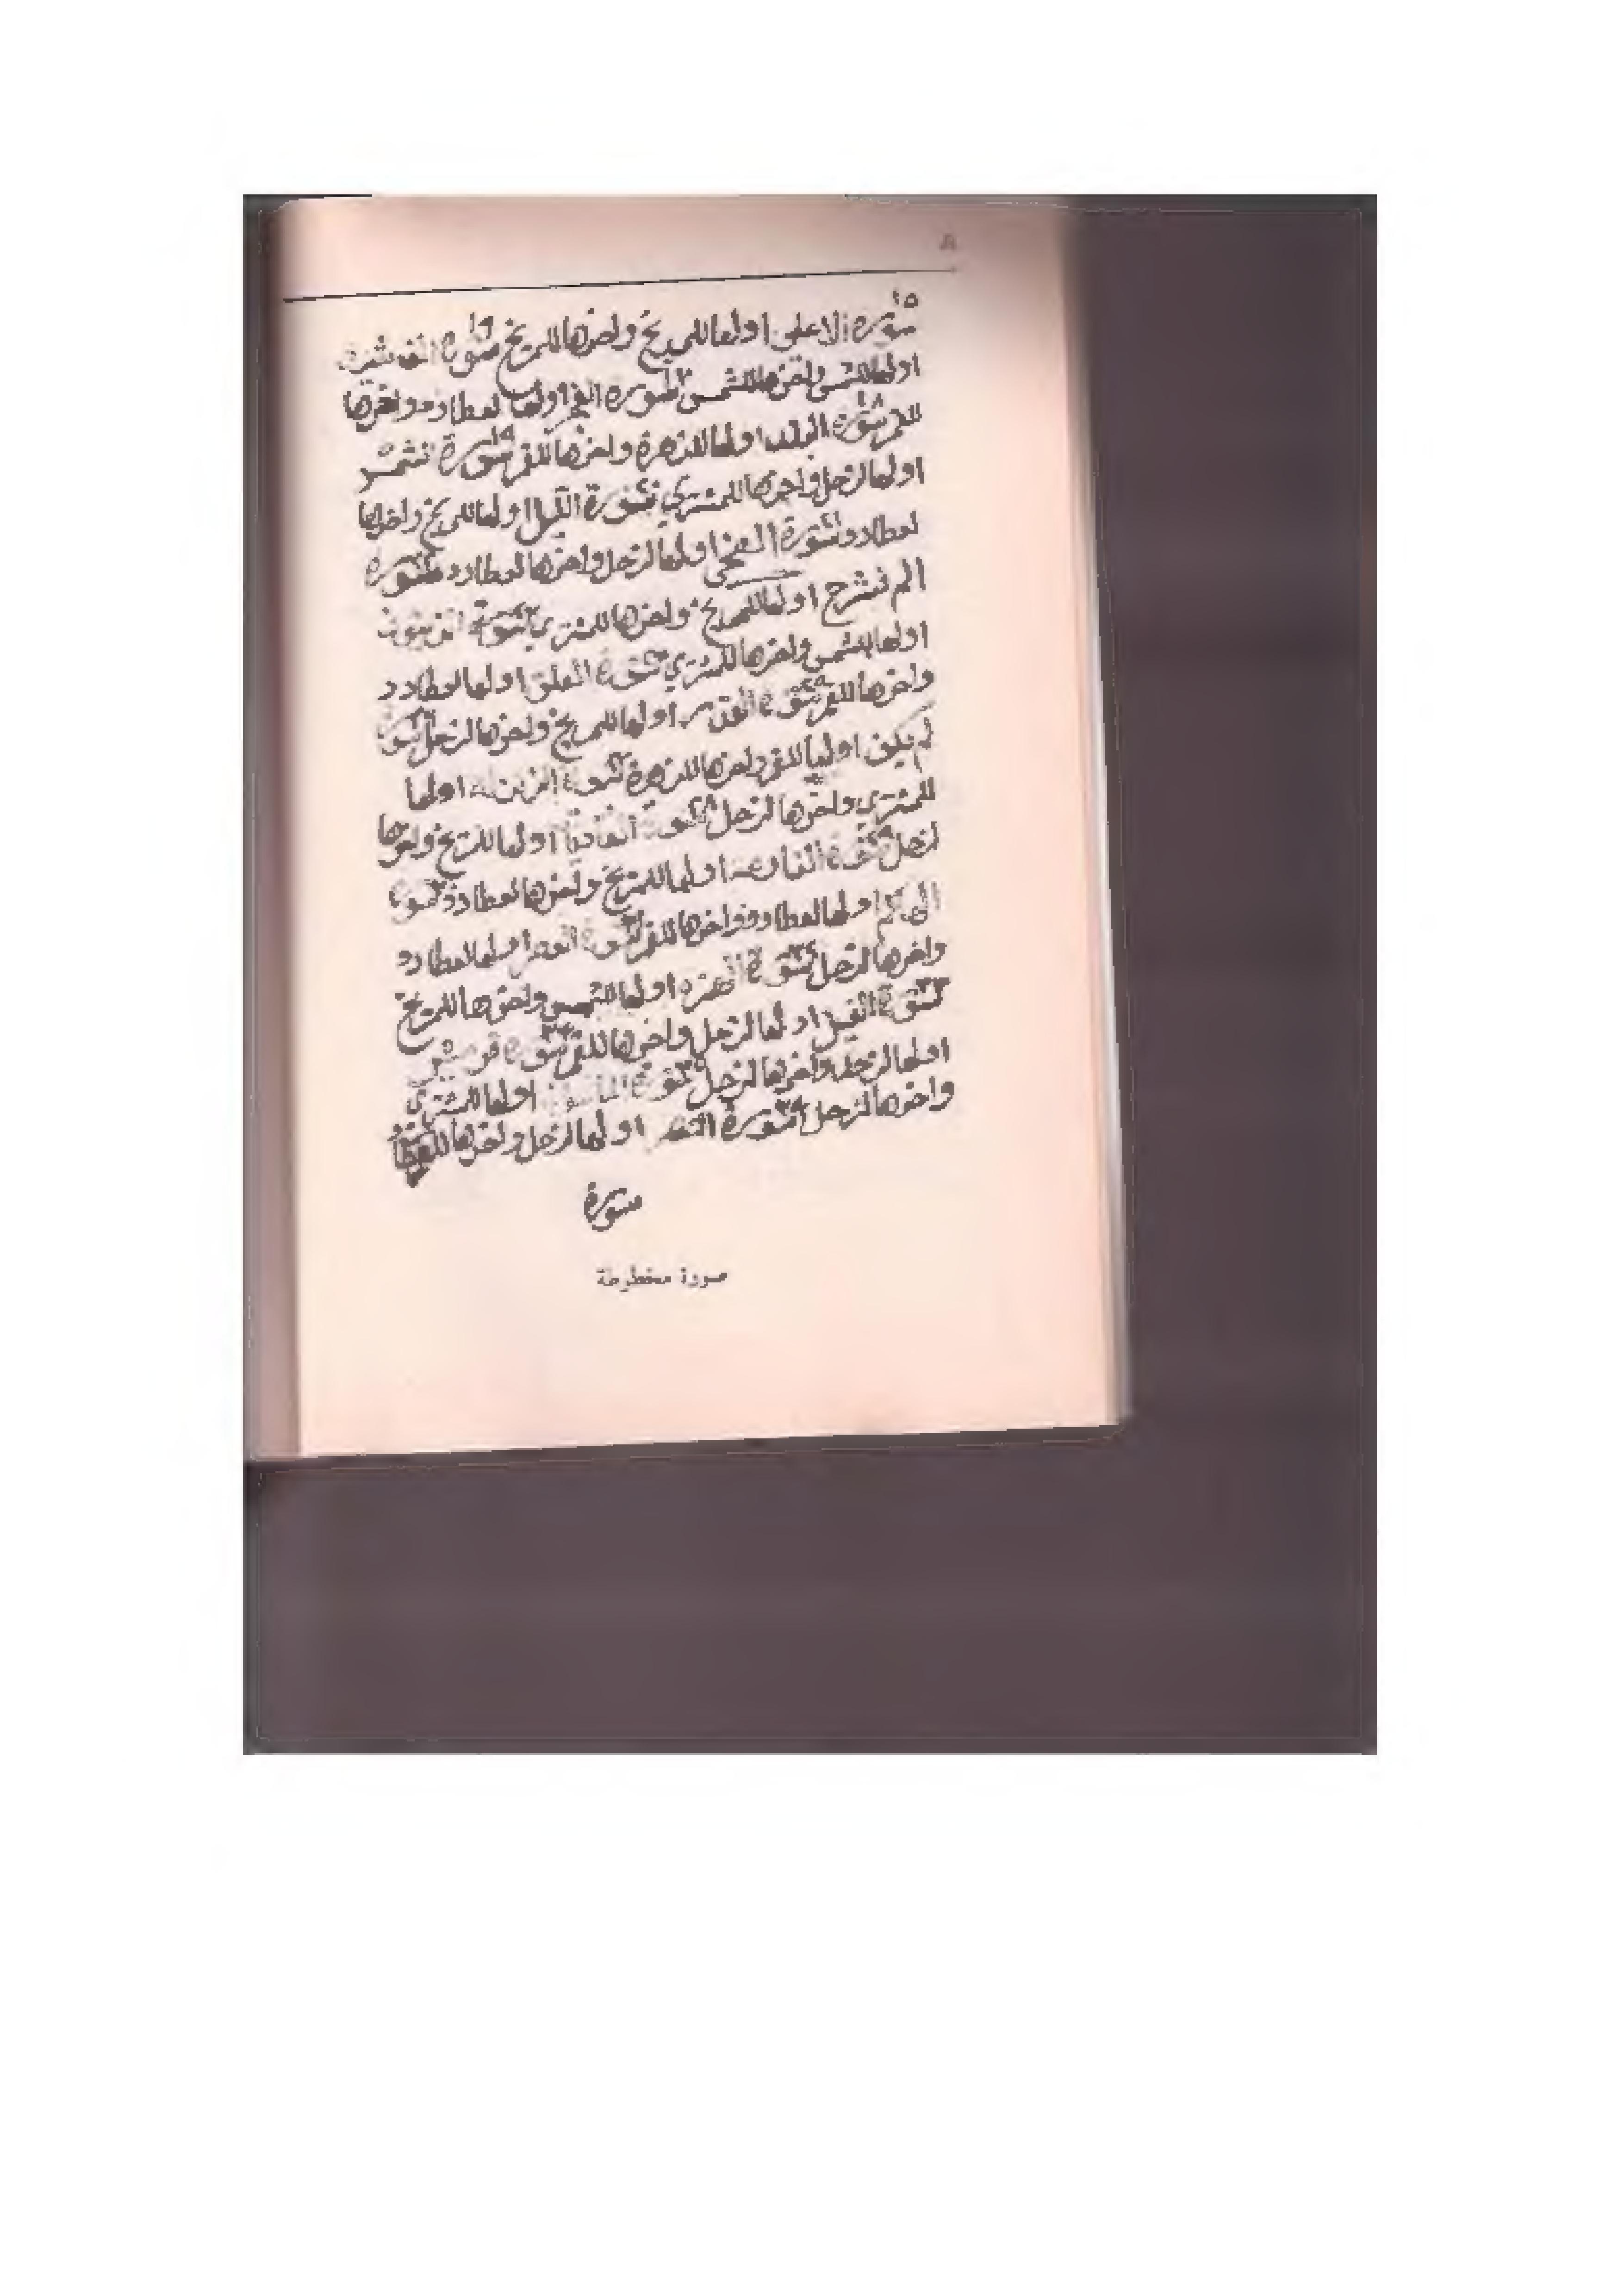 ١٥
سورة الاعلى اولها للمريخ واخرها للمريخ ١٦ سورة الغاشية
اولها للشمس واخرها للشمس سورة الفجر اولها لعطارد واخرها
للقمر ١٨ سورة البلد اولها للزهرة واخرها للقمر ١٩ سورة
اولها لزحل واخرها للمشتري سورة الليل اولها للمريخ واخرها
لعطارد سورة الضحى اولها لزحل واخرها لعطارد سورة
الم نشرح اولها للمريخ واخرها للمشتري سورة
اولها للشمس واخرها للمشتري سورة العلق اولها لعطارد
واخرها للقمر سورة القدر اولها للمريخ واخرها لزحل سورة
لم يكن اولها للقمر واخرها للزهرة سورة اولها
للمشتري واخرها لزحل سورة اولها للمريخ واخرها
لزحل سورة القارعة اولها للمريخ واخرها لعطارد سورة
الهاكم اولها لعطارد واخرها للقمر سورة العصر اولها لعطارد
واخرها لزحل سورة الهمزة اولها للشمس واخرها للمريخ
سورة الفيل اولها لزحل واخرها للقمر سورة قريش
اولها لزحل واخرها لزحل سورة اولها للمشتري
واخرها لزحل سورة اولها لزحل واخرها
سورة
صورة مخطوطة